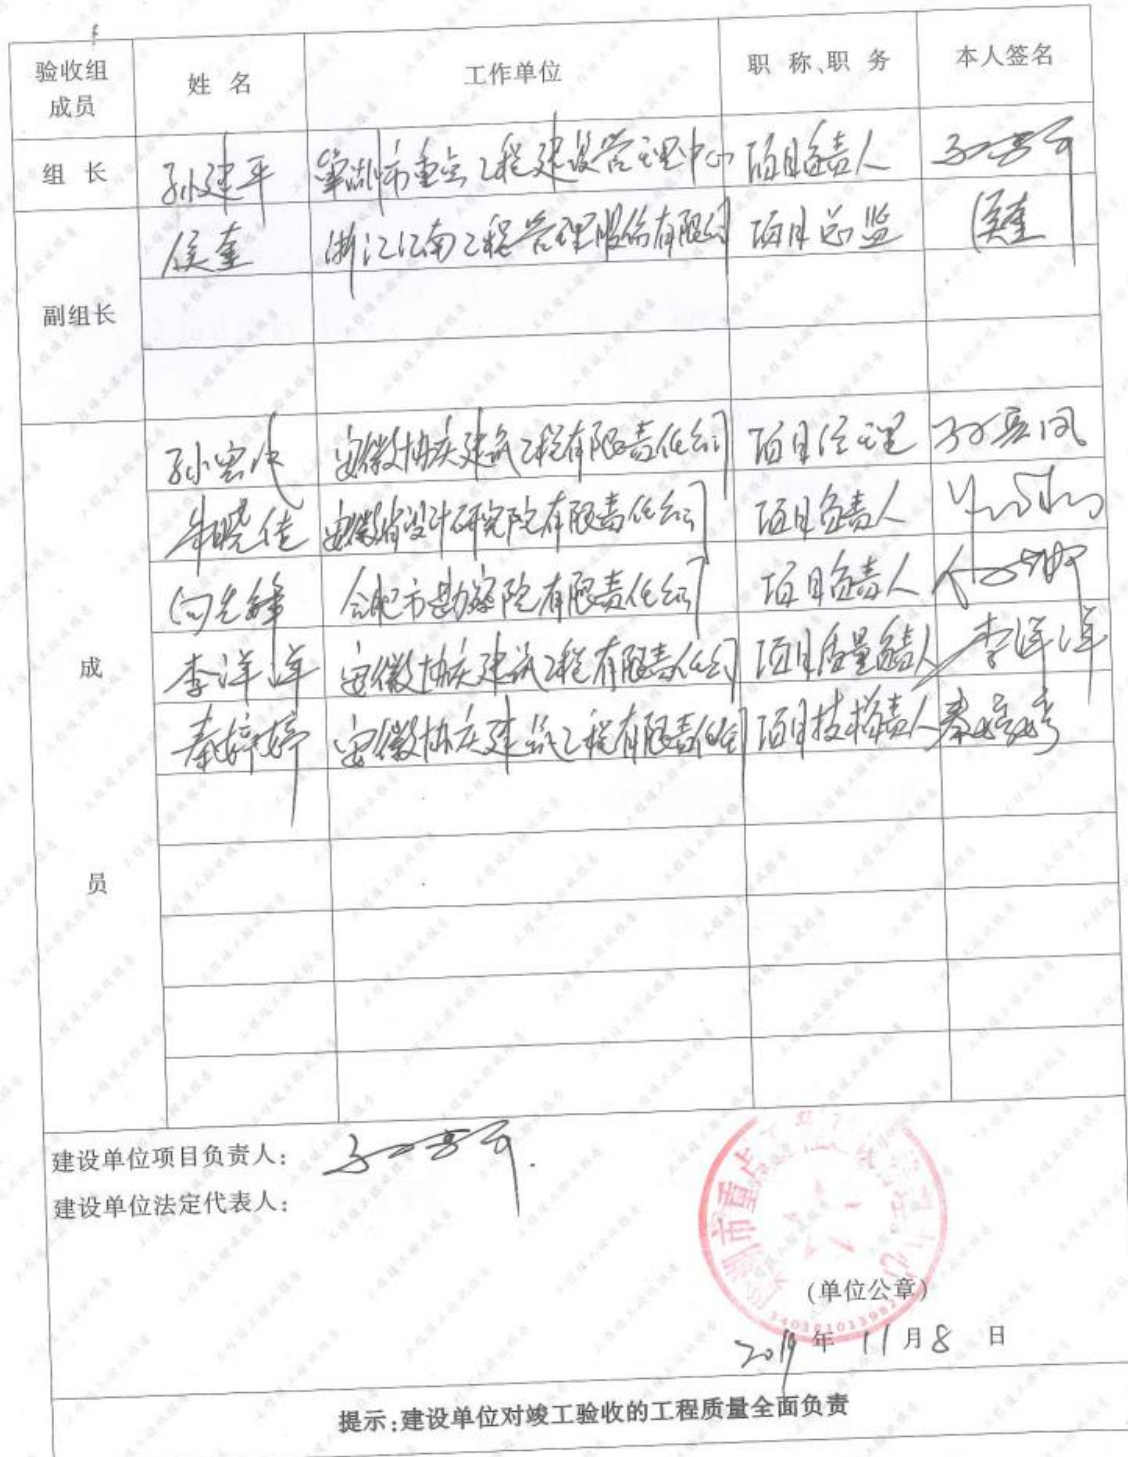 验收组成员 姓名 工作单位 职称、职务 本人签名
组长 孙建平 芜湖市重点工程建设管理中心 项目负责人
副组长 侯奎 浙江江南工程管理股份有限公司 项目总监 侯奎
成员
安徽协庆建筑工程有限责任公司 项目经理
朱晓佳 安徽省设计研究院有限责任公司 项目负责人
合肥市勘察院有限责任公司 项目负责人
李洋洋 安徽协庆建筑工程有限责任公司 项目质量负责人 李洋洋
秦婷婷 安徽协庆建筑工程有限责任公司 项目技术负责人 秦婷婷
建设单位项目负责人：
建设单位法定代表人：
(单位公章)
2019年11月8日
提示：建设单位对竣工验收的工程质量全面负责